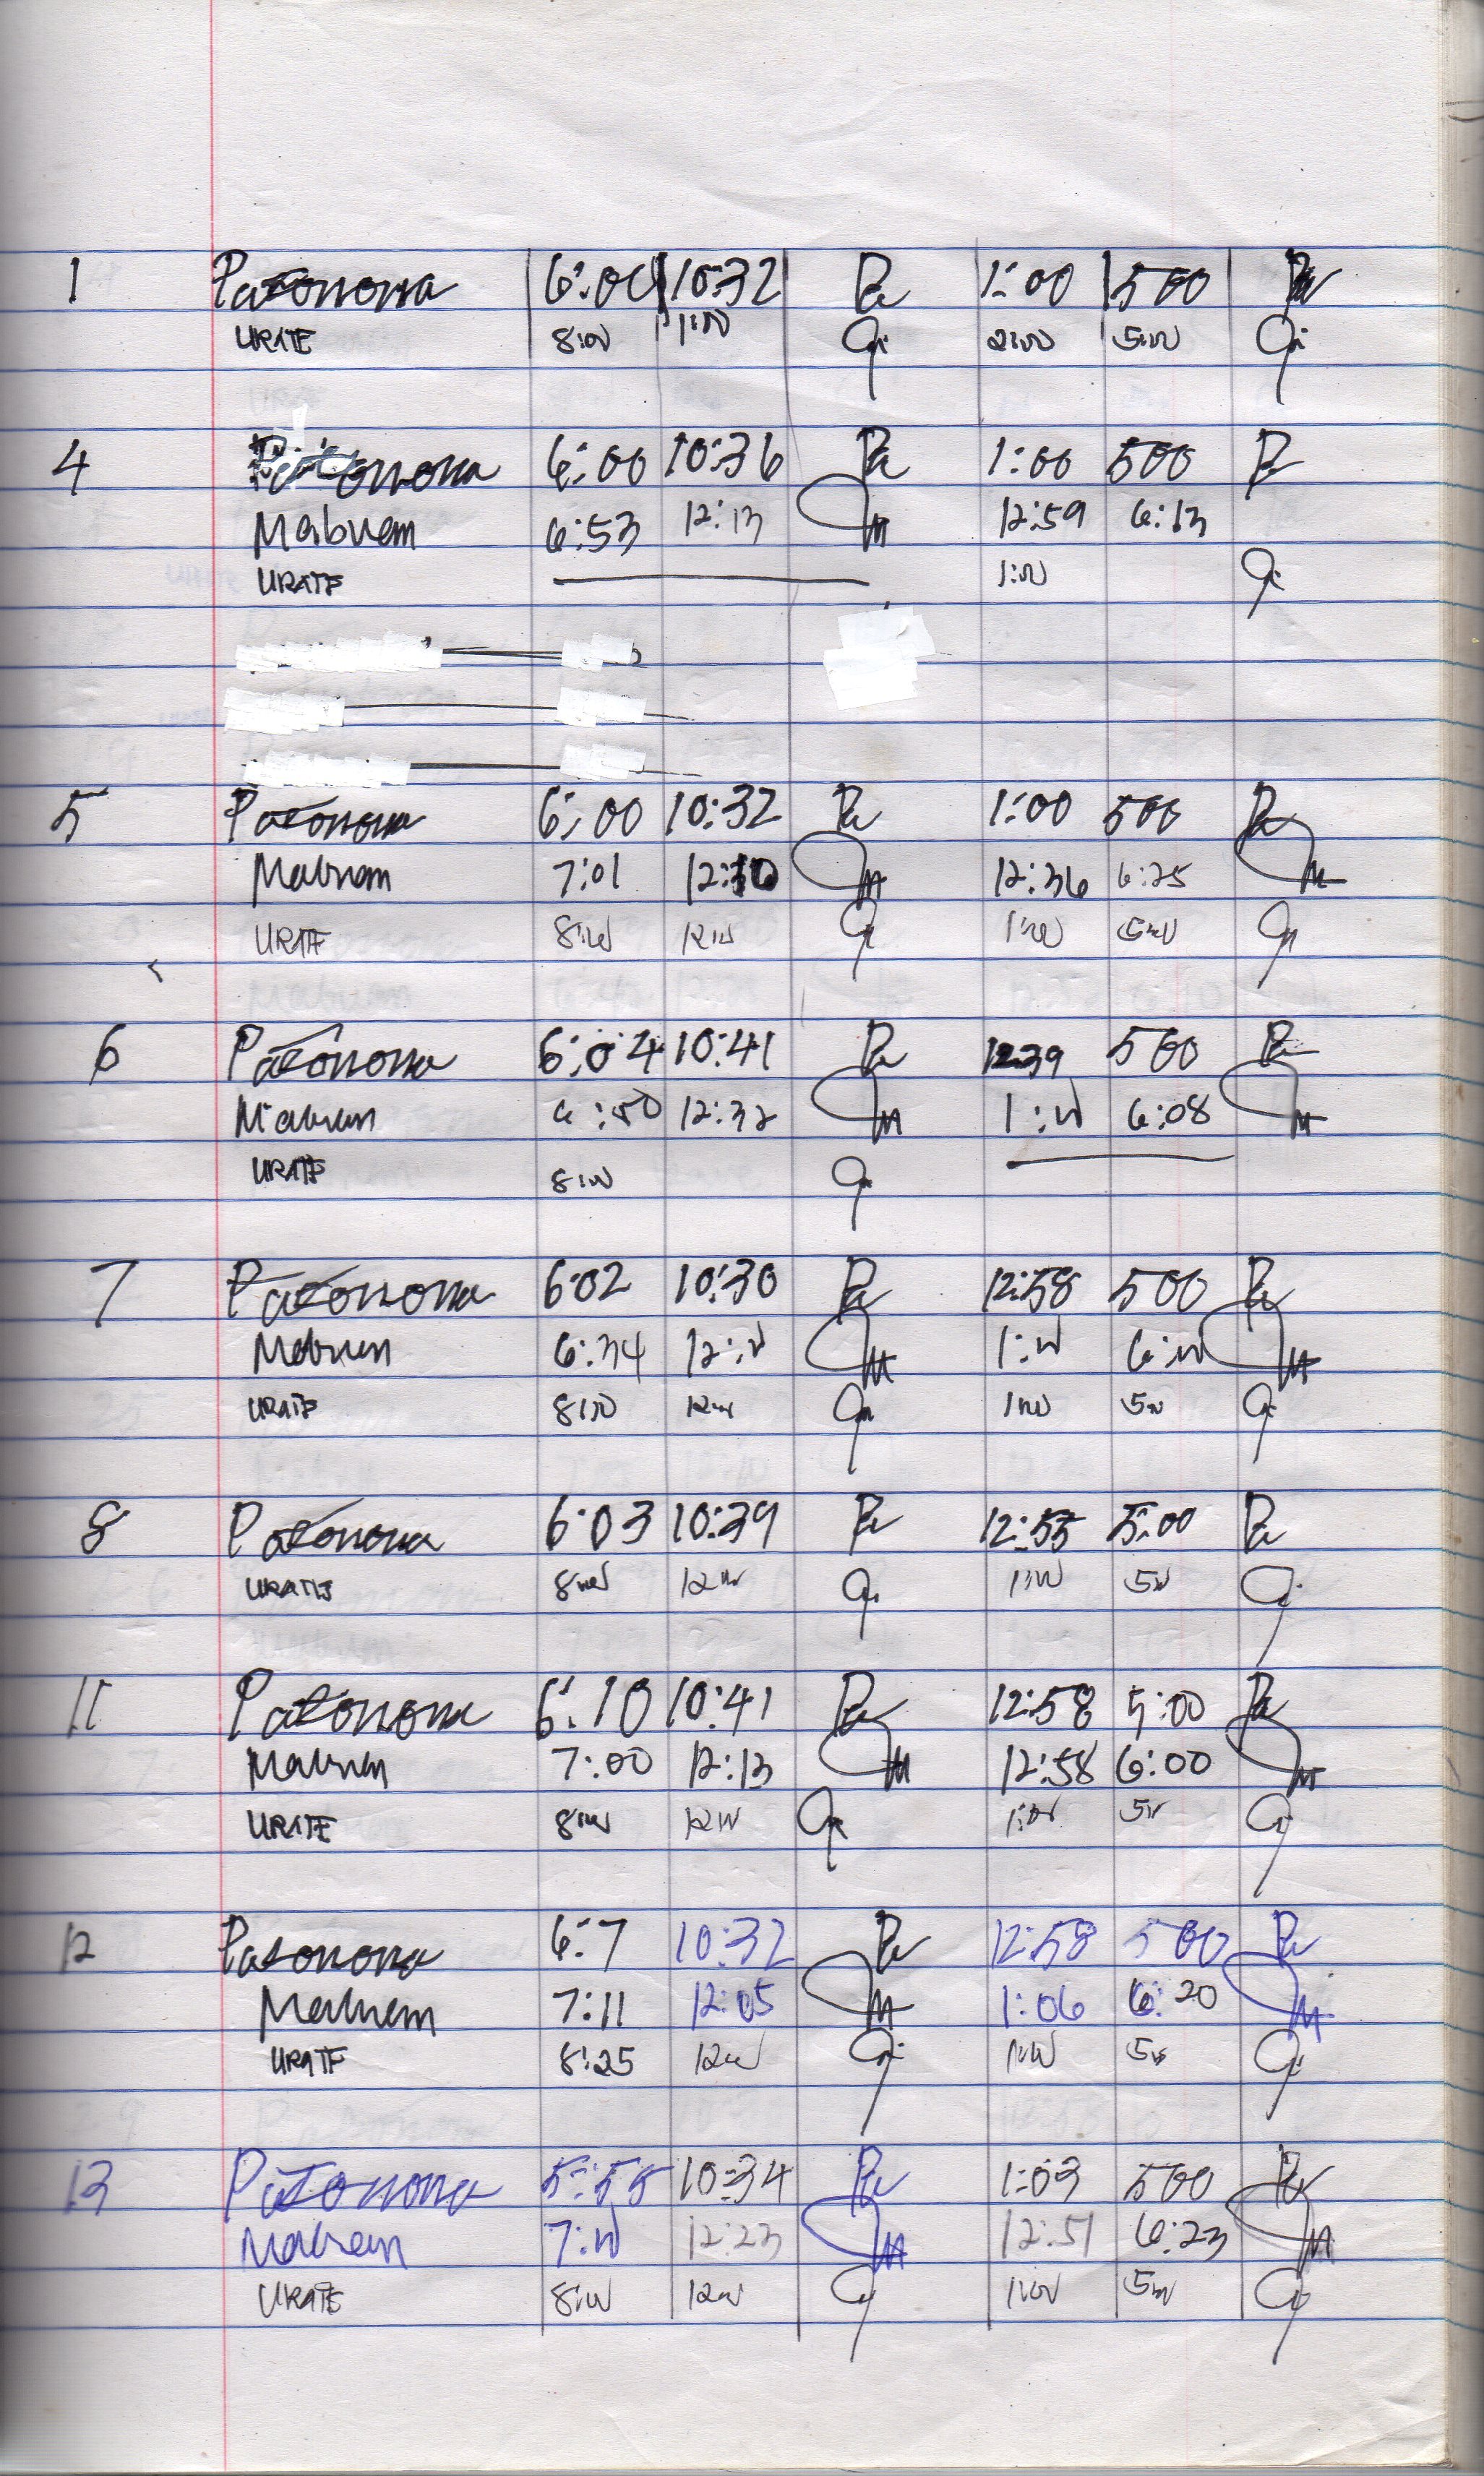 1 Patonona 6:00 10:32 Pa 1:00 500 Pa
URATE 8:00 11:00 2:00 5:00
4 Patonona 6:00 10:36 Pa 1:00 500 Pa
Mabuem 6:53 12:13 M 12:59 6:13
URATE 1:00
5 Patonona 6:00 10:32 Pa 1:00 500 Pa
Mabuem 7:01 12:10 M 12:36 6:25 M
URATE 8:00 12:00 1:00 5:00
6 Patonona 6:04 10:41 Pa 12:39 500 Pa
Mabuem 6:50 12:32 M 1:00 6:08 M
URATE 8:00
7 Patonona 6:02 10:30 Pa 12:58 500 Pa
Mabuem 6:34 12:00 M 1:00 6:00 M
URATE 8:00 12:00 1:00 5:00
8 Patonona 6:03 10:39 Pa 12:55 5:00 Pa
URATE 8:00 12:00 1:00 5:00
11 Patonona 6:10 10:41 Pa 12:58 5:00 Pa
Mabuem 7:00 12:13 M 12:58 6:00 M
URATE 8:00 12:00 1:00 5:00
12 Patonona 6:7 10:32 Pa 12:58 500 Pa
Mabuem 7:11 12:05 M 1:06 6:20 M
URATE 8:25 12:00 1:00 5:00
13 Patonona 5:55 10:34 Pa 1:03 500 Pa
Mabuem 7:00 12:23 M 12:51 6:23 M
URATE 8:00 12:00 1:00 5:00